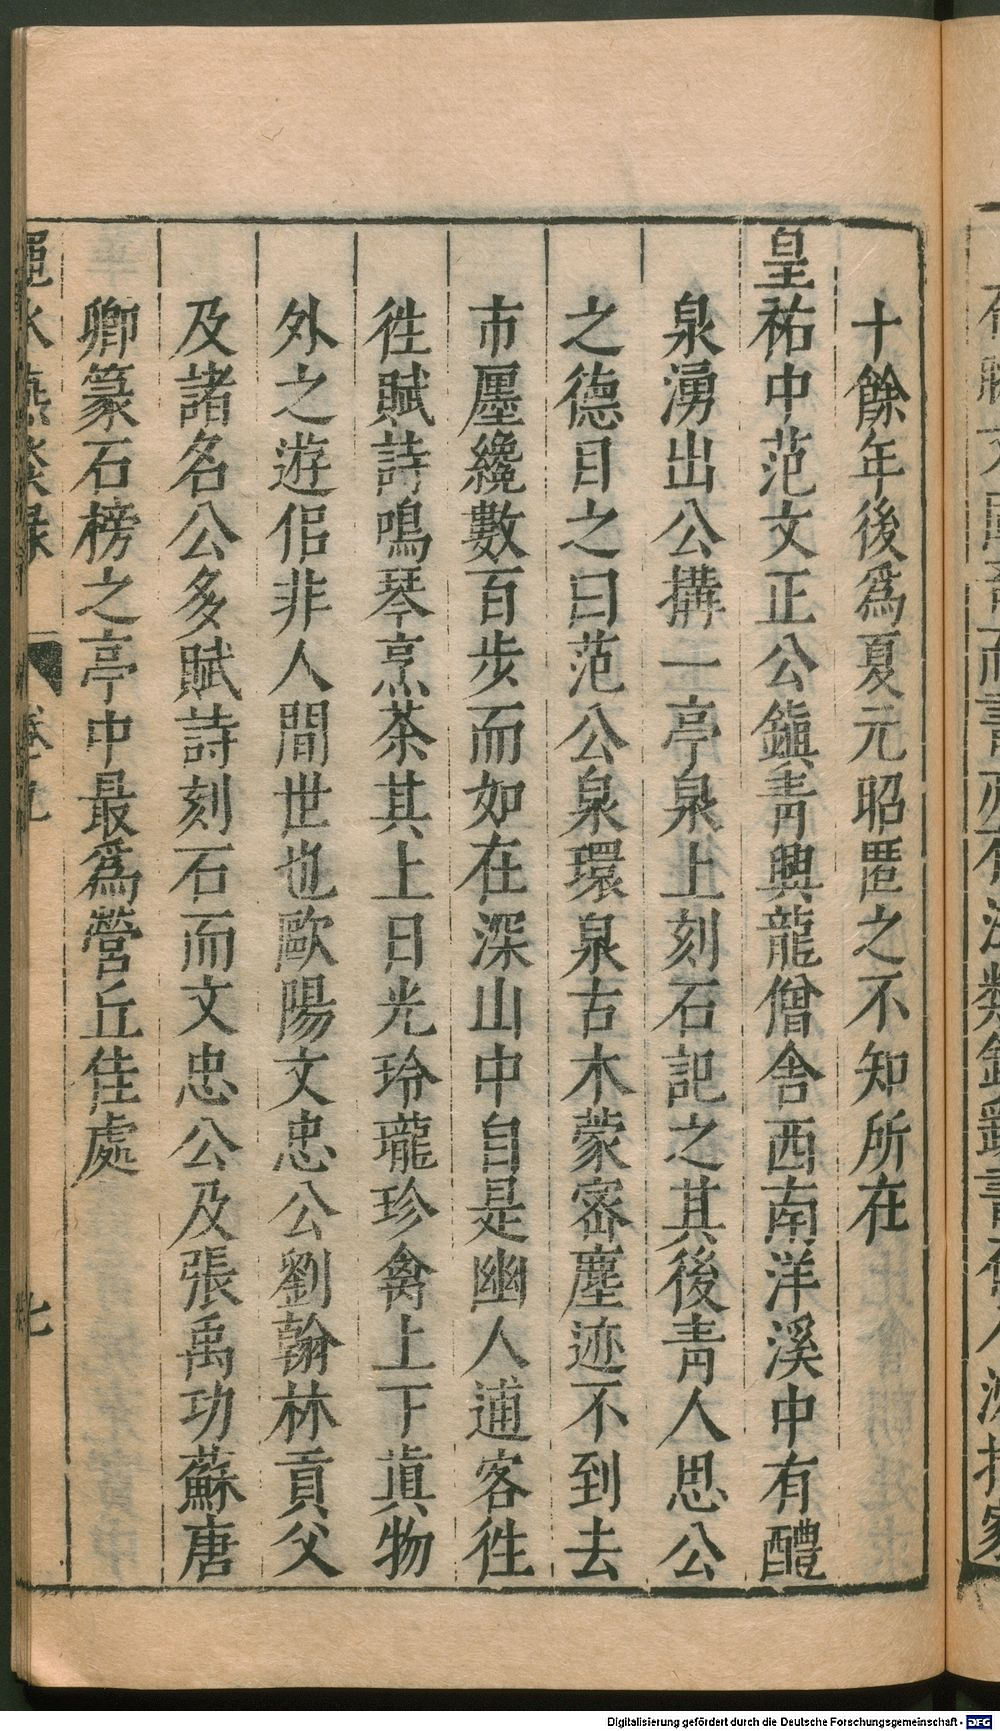 十餘年後爲夏元昭匿之不知所在
皇祐中范文正公鎭靑興龍僧舍西南洋溪中有醴
泉湧出公搆一亭泉上刻石記之其後靑人思公
之德目之曰范公泉環泉古木蒙密塵迹不到去
市廛纔數百步而如在深山中自是幽人逋客徃
徃賦詩鳴琴烹茶其上日光玲瓏珍禽上下眞物
外之遊侣非人間世也歐陽文忠公劉翰林貢父
及諸名公多賦詩刻石而文忠公及張禹功蘇唐
卿篆石榜之亭中最爲營丘佳處
澠水燕談録 卷九 七
Digitalisierung gefördert durch die Deutsche Forschungsgemeinschaft - DFG